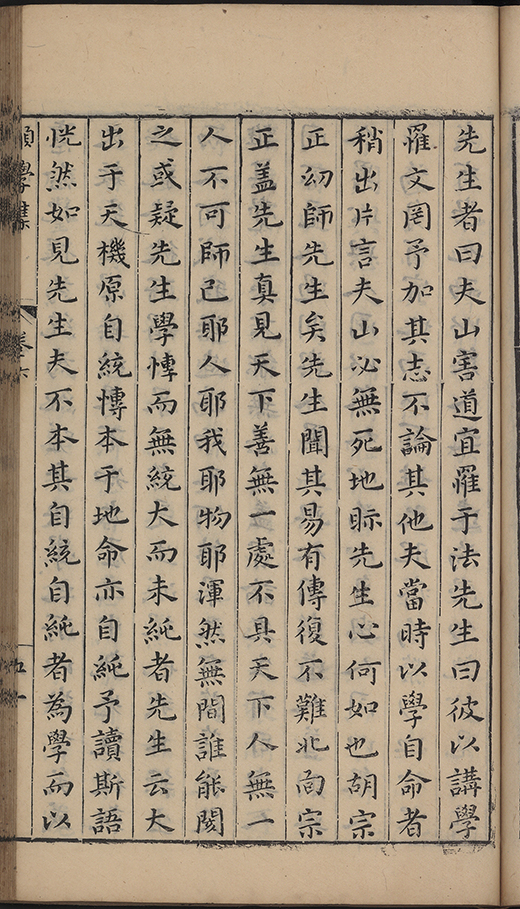 先生者曰夫山害道宜罹于法先生曰彼以講學
罹文罔予加其志不論其他夫當時以學自命者
稍出片言夫山必無死地眎先生心何如也胡宗
正㓜師先生矣先生聞其易有傳復不難北面宗
正盖先生真見天下善無一處不具天下人無一
人不可師己耶人耶我耶物耶渾然無間誰能閡
之或疑先生學愽而無統大而未純者先生云大
出于天機原自統愽本于地命亦自純予讀斯語
恍然如見先生夫不本其自統自純者為學而以
學集
卷六
五十